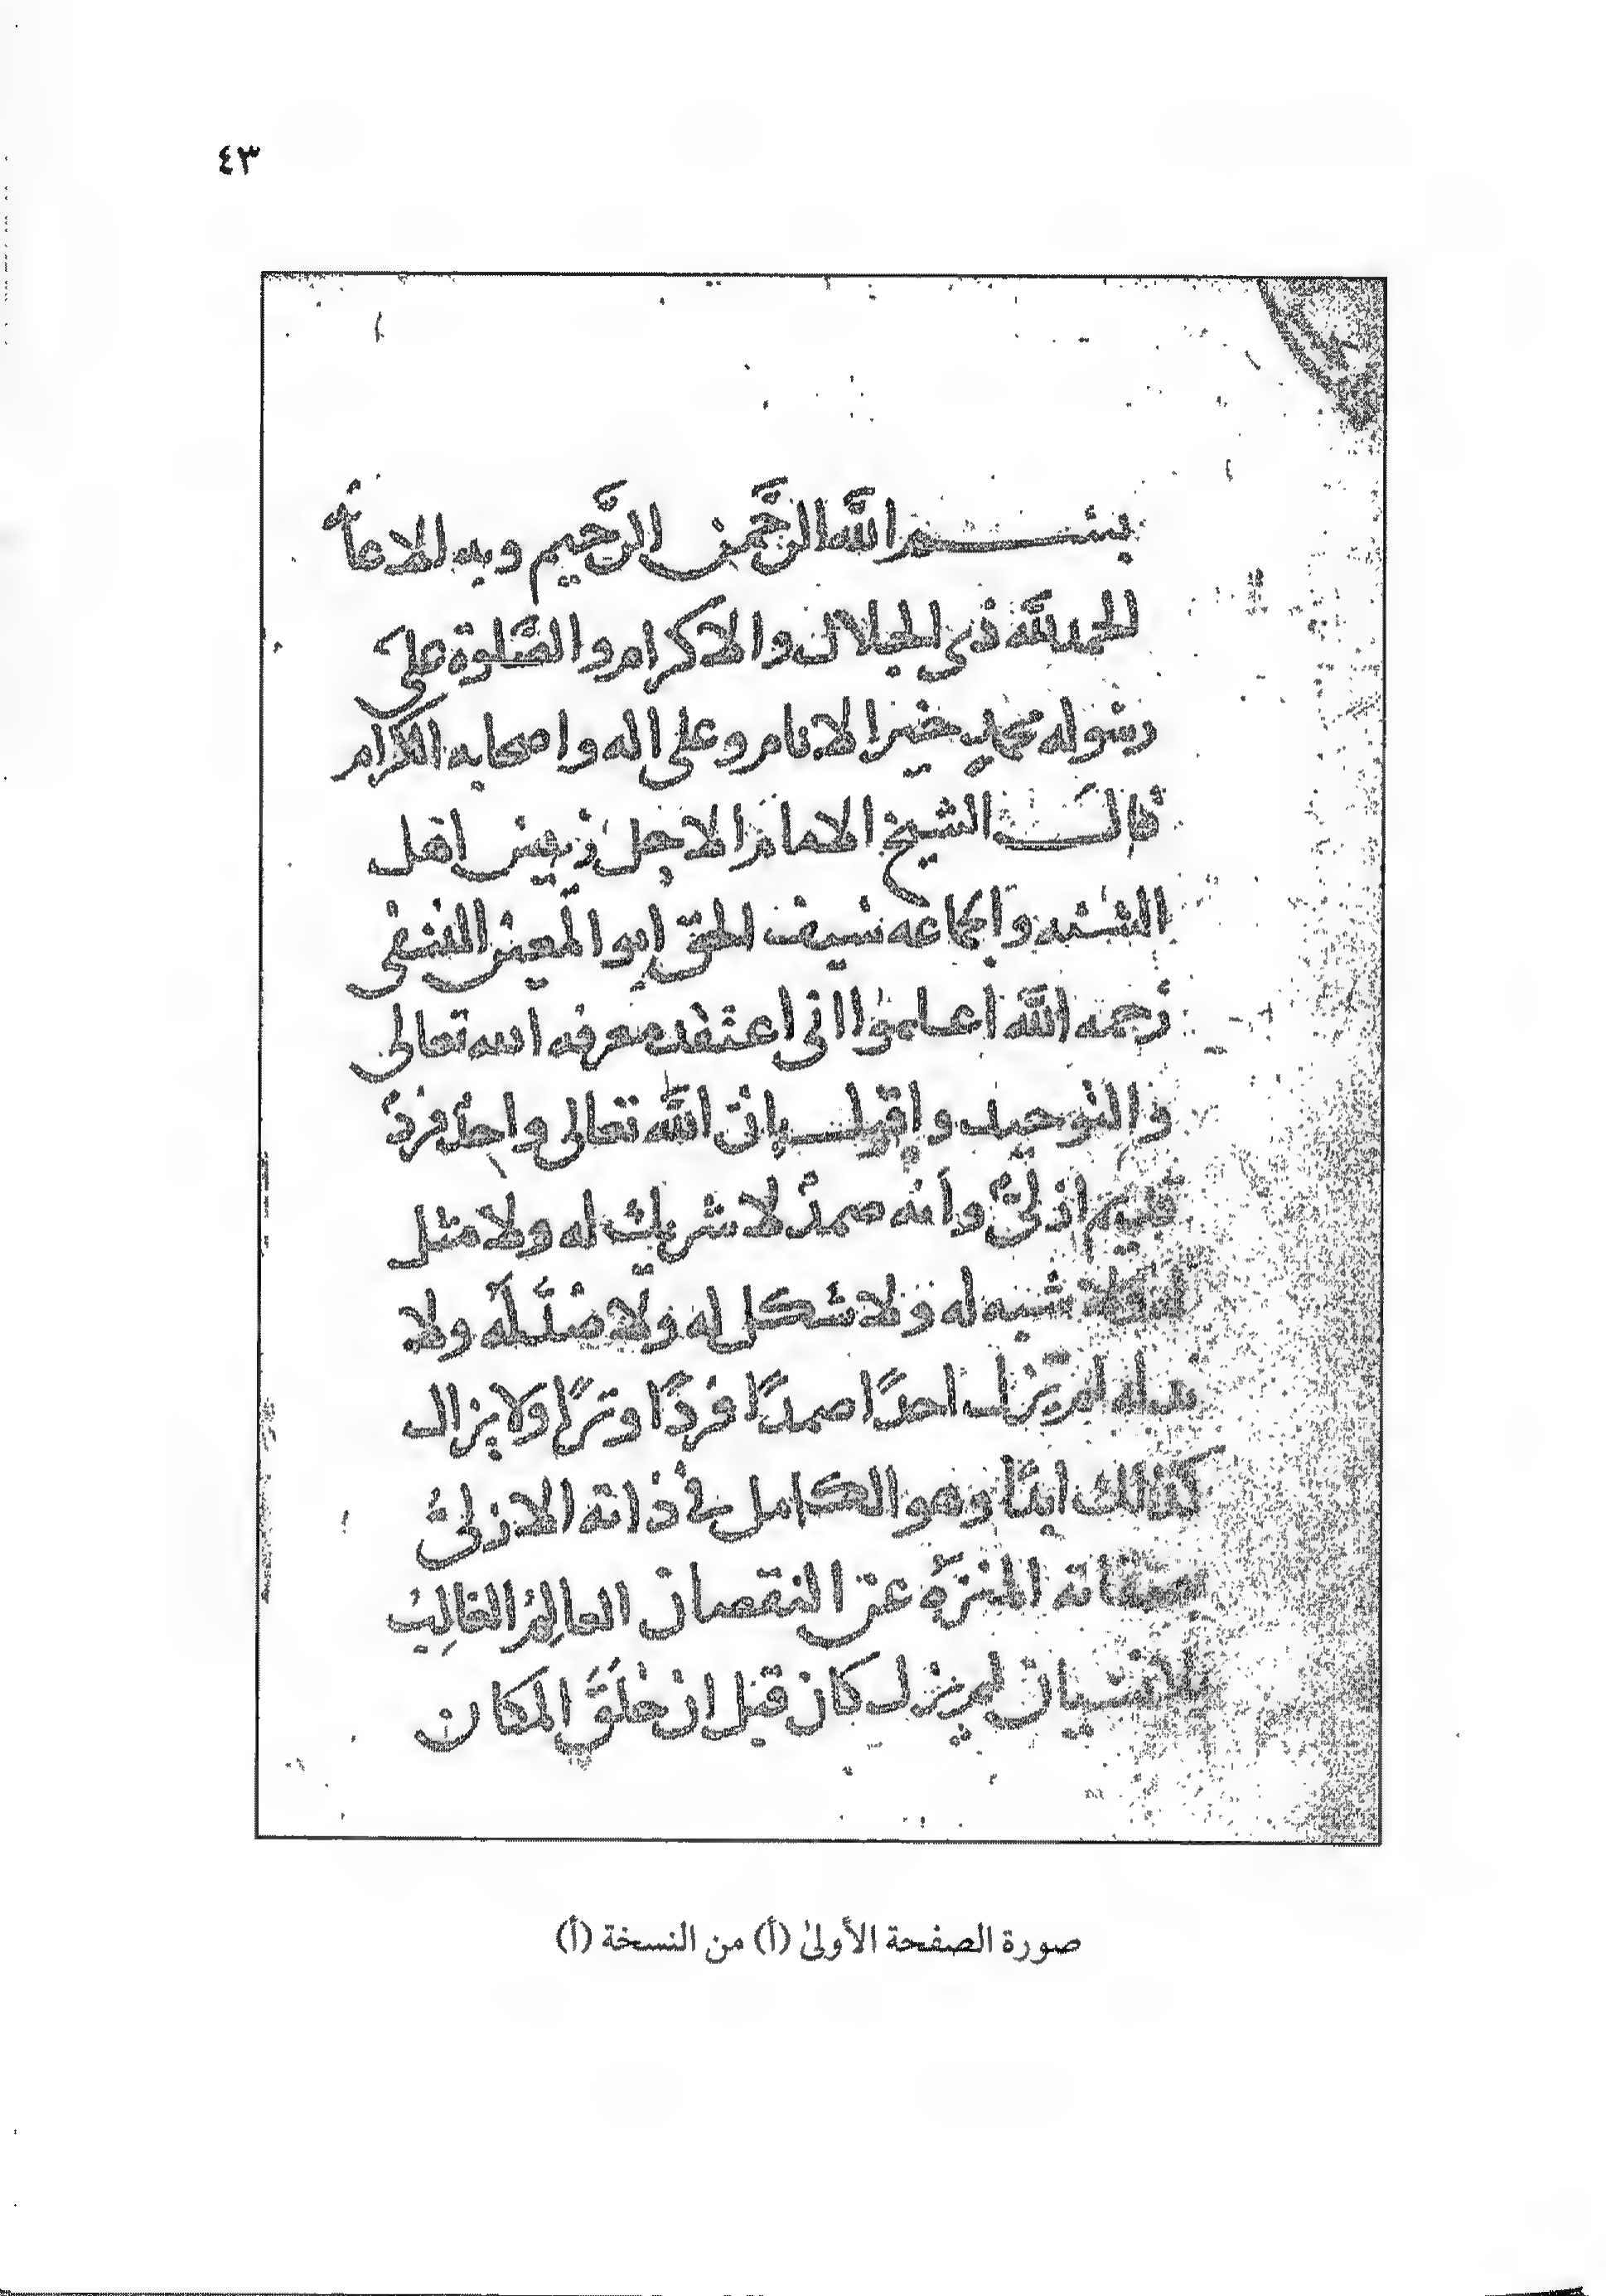 ٤٣
بسم الله الرحمن الرحيم وبه الاعانه
الحمد لله ذي الجلال والاكرام والصلوة على
رسوله محمد خير الانام وعلى اله واصحابه الكرام
قال الشيخ الامام الاجل زين اهل
السنه والجماعه سيف الحق ابو المعين النسفي
رحمه الله اعلموا اني اعتقد معرفه الله تعالى
والتوحيد واقول بان الله تعالى واحدٌ فردٌ
قديم ازليٌّ وانه صمدٌ لا شريك له ولا مثل
له ولا شبه له ولا شكل له ولا ضدَّ له ولا
ند له لم يزل احدًا صمدًا فردًا وترًا ولا يزال
كذلك ابدًا وهو الكامل في ذاته الازليُّ
بصفاته المنزه عن النقصان العالم الغالب
بلا نسيان لم يزل كان قبل ان خلق المكان
صورة الصفحة الأولىٰ (أ) من النسخة (أ)